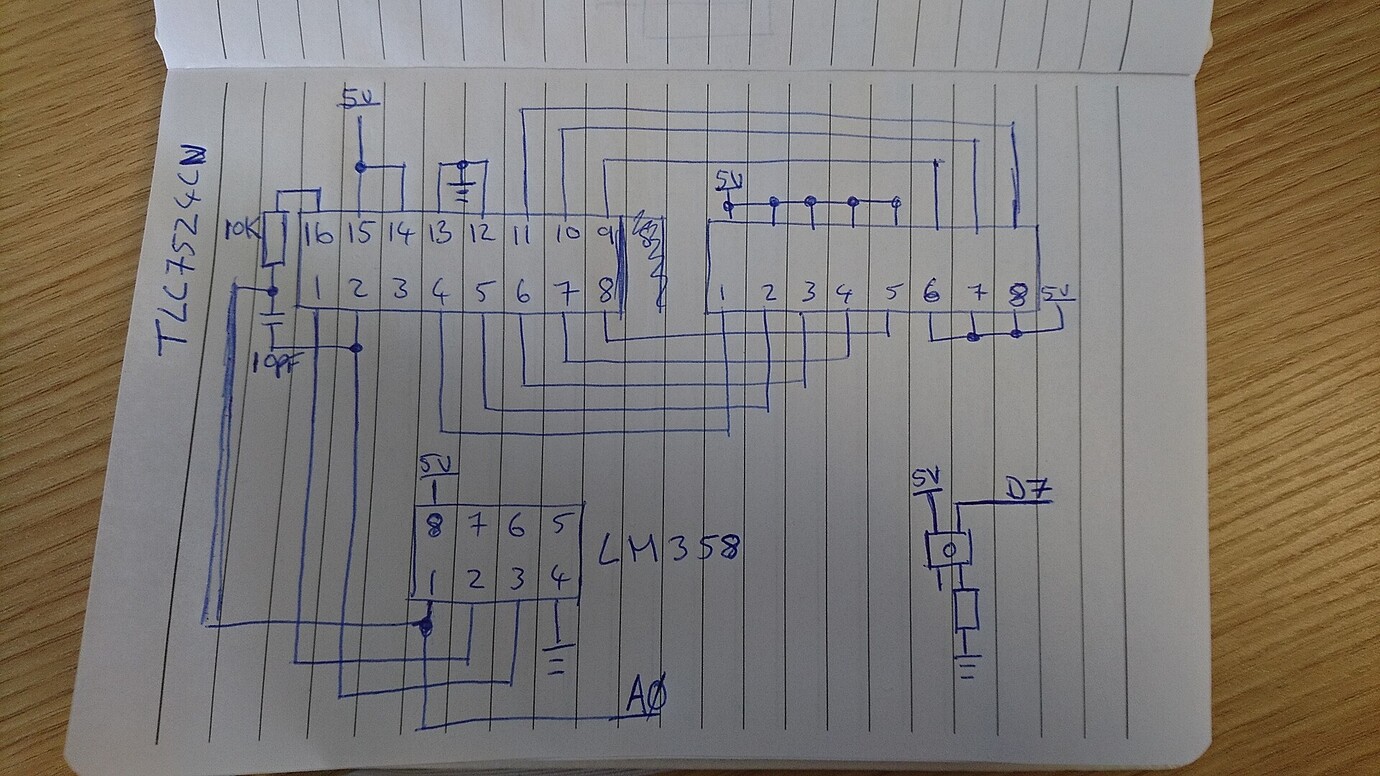 TLC7524CN
5V
10K
16 15 14 13 12 11 10 9
1 2 3 4 5 6 7 8
10pF
5V
1 2 3 4 5 6 7 8 5V
5V
8 7 6 5
1 2 3 4
LM358
AØ
5V
D7